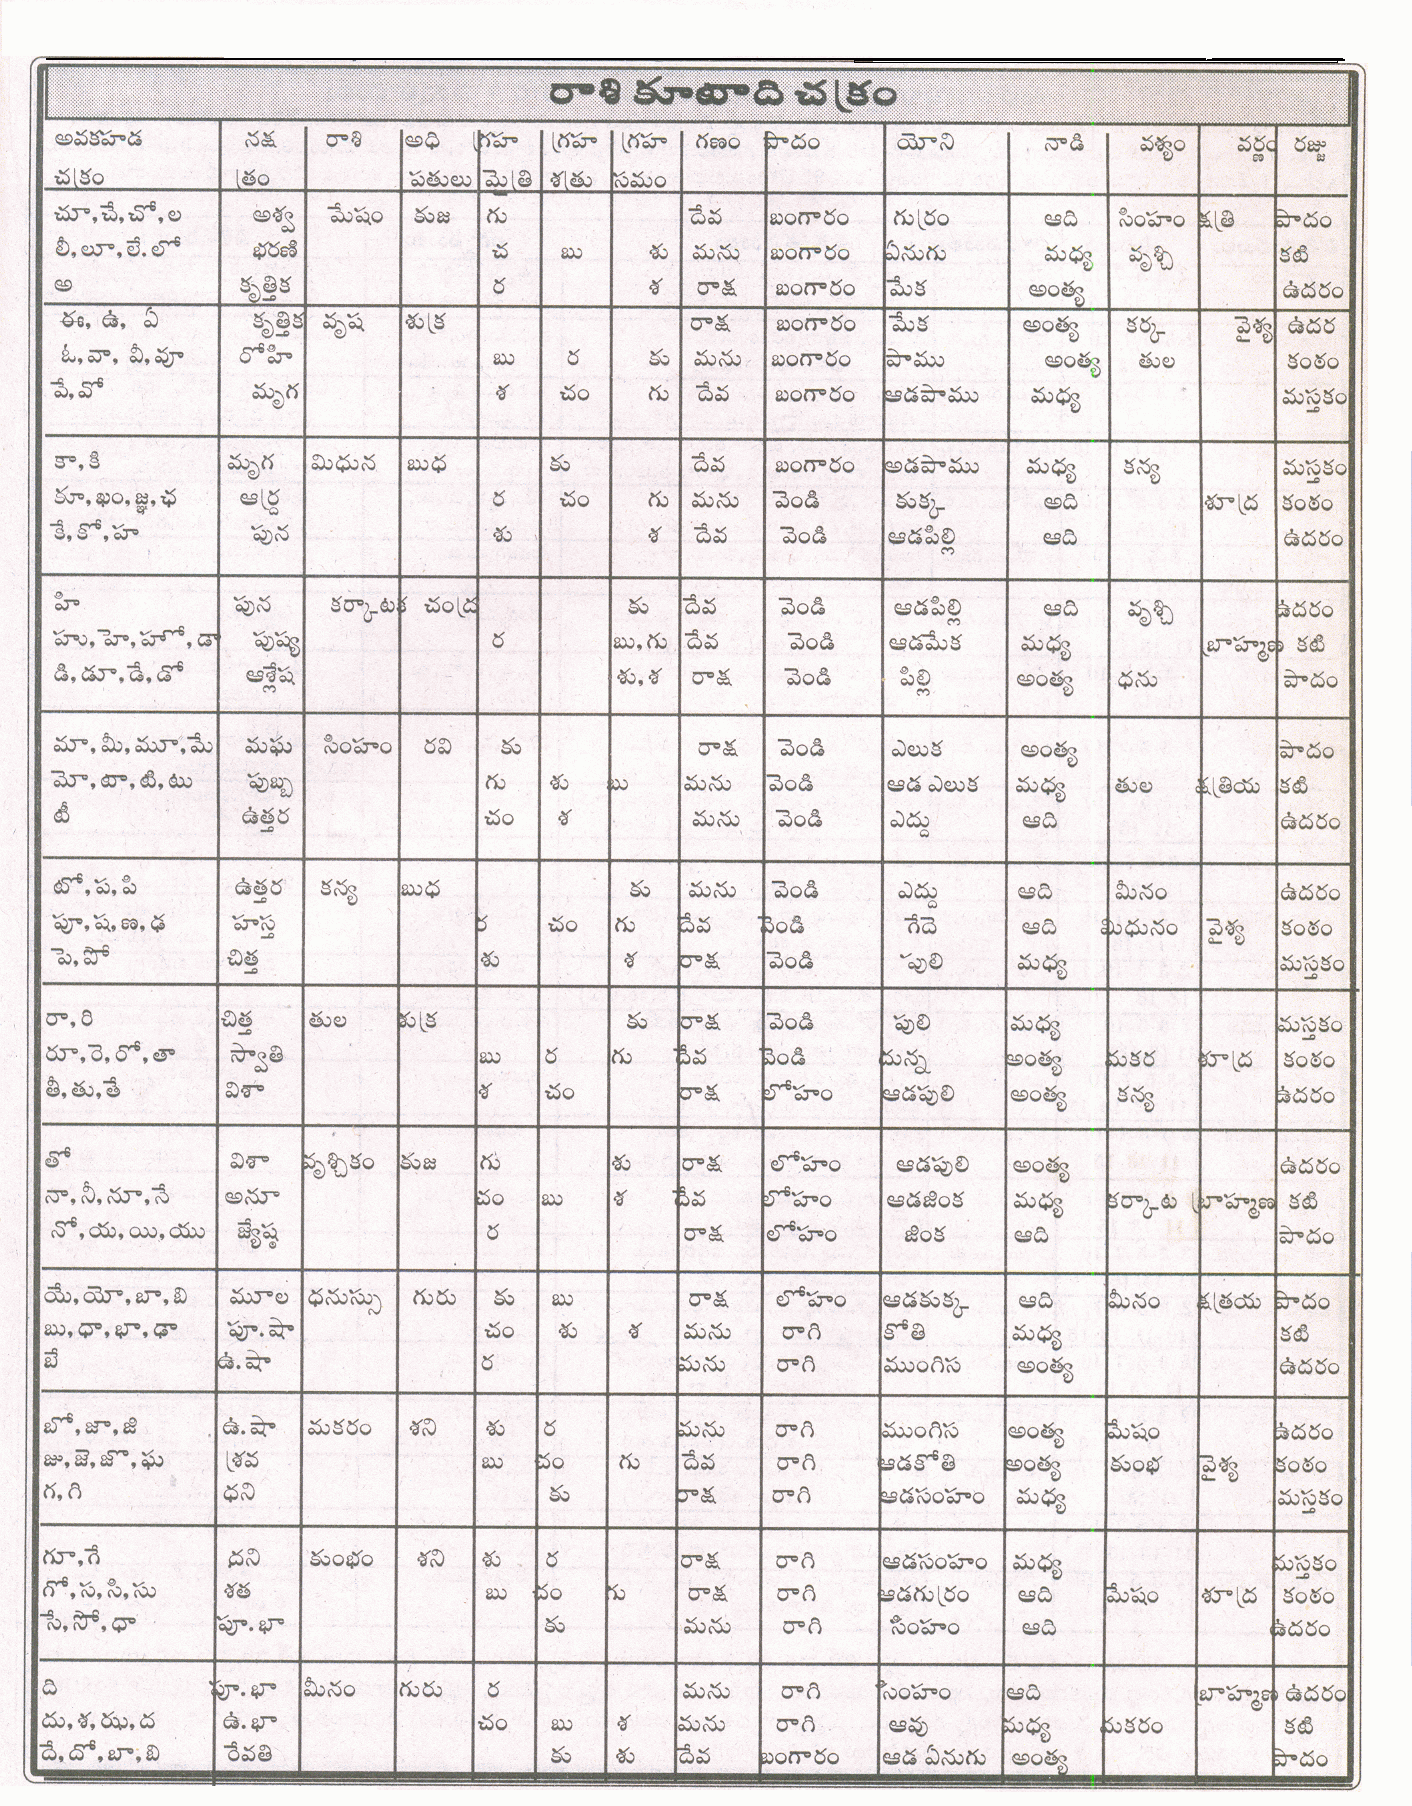 రాశి కూటాది చక్రం
అవకహడ నక్ష రాశి అధి గ్రహ గ్రహ గ్రహ గణం పాదం యోని నాడి వశ్యం వర్ణం రజ్జు
చక్రం త్రం పతులు మైత్రి శత్రు సమం
చూ,చే,చో,ల అశ్వ మేషం కుజ గు దేవ బంగారం గుర్రం ఆది సింహం క్షత్రి పాదం
లీ,లూ,లే.లో భరణి చ బు శు మను బంగారం ఏనుగు మధ్య వృశ్చి కటి
అ కృత్తిక ర శ రాక్ష బంగారం మేక అంత్య ఉదరం
ఈ, ఉ, ఏ కృత్తిక వృష శుక్ర రాక్ష బంగారం మేక అంత్య కర్క వైశ్య ఉదర
ఓ,వా, వీ,వూ రోహి బు ర కు మను బంగారం పాము అంత్య తుల కంఠం
వే,వో మృగ శ చం గు దేవ బంగారం ఆడపాము మధ్య మస్తకం
కా,కి మృగ మిధున బుధ కు దేవ బంగారం అడపాము మధ్య కన్య మస్తకం
కూ,ఖం,జ్ఞ,ఛ ఆర్ద్ర ర చం గు మను వెండి కుక్క అది శూద్ర కంఠం
కే,కో,హ పున శు శ దేవ వెండి ఆడపిల్లి ఆది ఉదరం
హి పున కర్కాటక చంద్ర కు దేవ వెండి ఆడపిల్లి ఆది వృశ్చి ఉదరం
హు,హె,హో,డా పుష్య ర బు,గు దేవ వెండి ఆడమేక మధ్య బ్రాహ్మణ కటి
డి,డూ,డే,డో ఆశ్లేష శు,శ రాక్ష వెండి పిల్లి అంత్య ధను పాదం
మా,మీ,మూ,మే మఘ సింహం రవి కు రాక్ష వెండి ఎలుక అంత్య పాదం
మో,టా,టి,టు పుబ్బ గు శు బు మను వెండి ఆడ ఎలుక మధ్య తుల క్షత్రియ కటి
టీ ఉత్తర చం శ మను వెండి ఎద్దు ఆది ఉదరం
టో,ప,పి ఉత్తర కన్య బుధ కు మను వెండి ఎద్దు ఆది మీనం ఉదరం
పూ,ష,ణ,ఢ హస్త ర చం గు దేవ వెండి గేదె ఆది మిధునం వైశ్య కంఠం
పె,పో చిత్త శు శ రాక్ష వెండి పులి మధ్య మస్తకం
రా,రి చిత్త తుల శుక్ర కు రాక్ష వెండి పులి మధ్య మస్తకం
రూ,రె,రో,తా స్వాతి బు ర గు దేవ వెండి దున్న అంత్య మకర శూద్ర కంఠం
తీ,తు,తే విశా శ చం రాక్ష లోహం ఆడపులి అంత్య కన్య ఉదరం
తో విశా వృశ్చికం కుజ గు శు రాక్ష లోహం ఆడపులి అంత్య ఉదరం
నా,నీ,నూ,నే అనూ చం బు శ దేవ లోహం ఆడజింక మధ్య కర్కాట బ్రాహ్మణ కటి
నో,య,యి,యు జ్యేష్ఠ ర రాక్ష లోహం జింక ఆది పాదం
యే,యో,బా,బి మూల ధనుస్సు గురు కు బు రాక్ష లోహం ఆడకుక్క ఆది మీనం క్షత్రయ పాదం
బు,ధా,భా,ఢా పూ.షా చం శు శ మను రాగి కోతి మధ్య కటి
బే ఉ.షా ర మను రాగి ముంగిస అంత్య ఉదరం
బో,జా,జి ఉ.షా మకరం శని శు ర మను రాగి ముంగిస అంత్య మేషం ఉదరం
జు,జె,జొ,ఘ శ్రవ బు చం గు దేవ రాగి ఆడకోతి అంత్య కుంభ వైశ్య కంఠం
గ,గి ధని కు రాక్ష రాగి ఆడసంహం మధ్య మస్తకం
గూ,గే దని కుంభం శని శు ర రాక్ష రాగి ఆడసంహం మధ్య మస్తకం
గో,స,సి,సు శత బు చం గు రాక్ష రాగి ఆడగుర్రం ఆది మేషం శూద్ర కంఠం
సే,సో,ధా పూ.భా కు మను రాగి సింహం ఆది ఉదరం
ది పూ.భా మీనం గురు ర మను రాగి సింహం ఆది బ్రాహ్మణ ఉదరం
దు,శ,ఝ,ద ఉ.భా చం బు శ మను రాగి ఆవు మధ్య మకరం కటి
దే,దో,బా,బి రేవతి కు శు దేవ బంగారం ఆడ ఏనుగు అంత్య పాదం